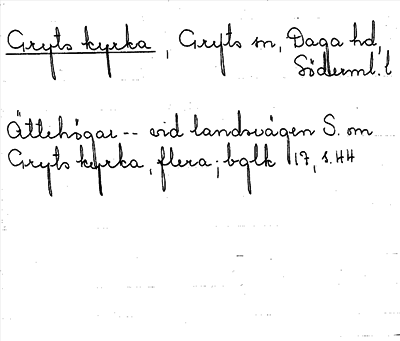 Gryts kyrka, Gryts sn, Daga hd,
Söderml. l
Ättehögar -- vid landsvägen S. om
Gryts kyrka, flera; bglk 17, s. 44